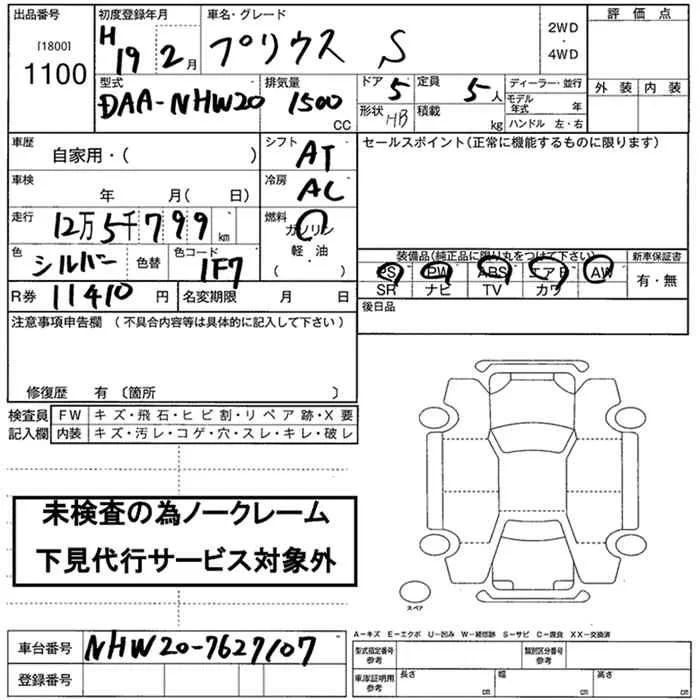 出品番号 初度登録年月 車名・グレード 評価点
[1800] 1100
H 19 2月 プリウス S
2WD・4WD
外装 内装
型式 DAA-NHW20
排気量 1500 CC
ドア 5 定員 5人
形状 HB 積載 kg
ディーラー・並行
モデル年式 年
ハンドル 左・右
車歴 自家用・( )
シフト AT
セールスポイント(正常に機能するものに限ります)
車検 年 月( 日)
冷房 AC
走行 12万5千799km
燃料 ガソリン・軽・油 ( )
色 シルバー 色替
色コード 1F7
装備品(純正品に限り丸をつけて下さい) 新車保証書
PS PW ABS エアB AW 有・無
SR ナビ TV カワ
R券 11410円 名変期限 月 日
後日品
注意事項申告欄 (不具合内容等は具体的に記入して下さい)
修復歴 有 〔箇所 〕
検査員記入欄
FW キズ・飛石・ヒビ割・リペア跡・X要
内装 キズ・汚レ・コゲ・穴・スレ・キレ・破レ
未検査の為ノークレーム
下見代行サービス対象外
スペア
A-キズ E-エクボ U-凹み W-補修跡 S-サビ C-腐食 XX-交換済
車台番号 NHW20-7627107
型式指定番号 参考 類別区分番号 参考
登録番号
車庫証明用 参考 長さ cm 幅 cm 高さ cm